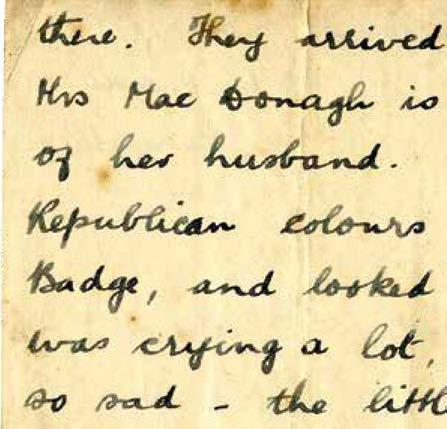 there. They arrived
Mrs Mac Donagh is
of her husband.
Republican colours
Badge, and looked
was crying a lot,
so sad - the littl